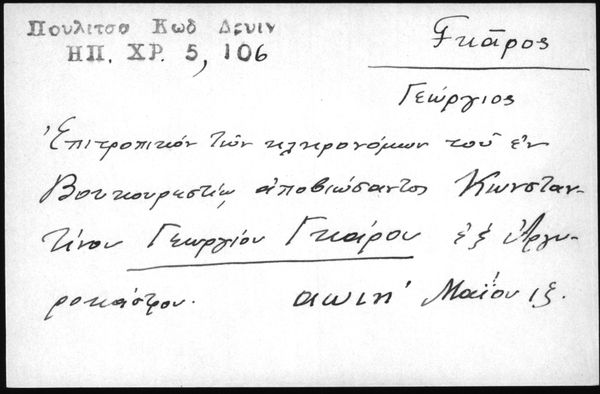 Πουλιτσα Κωδ Δρυιν
ΗΠ. ΧΡ. 5, 106
Γκᾶρος
Γεώργιος
Ἐπιτροπικόν τῶν κληρονόμων τοῦ ἐν
Βουκουρεστίῳ ἀποβιώσαντος Κωνσταν-
τίνου Γεωργίου Γκάρου ἐξ Ἀργυ-
ροκάστρου. αωιη' Μαΐου ιξ.